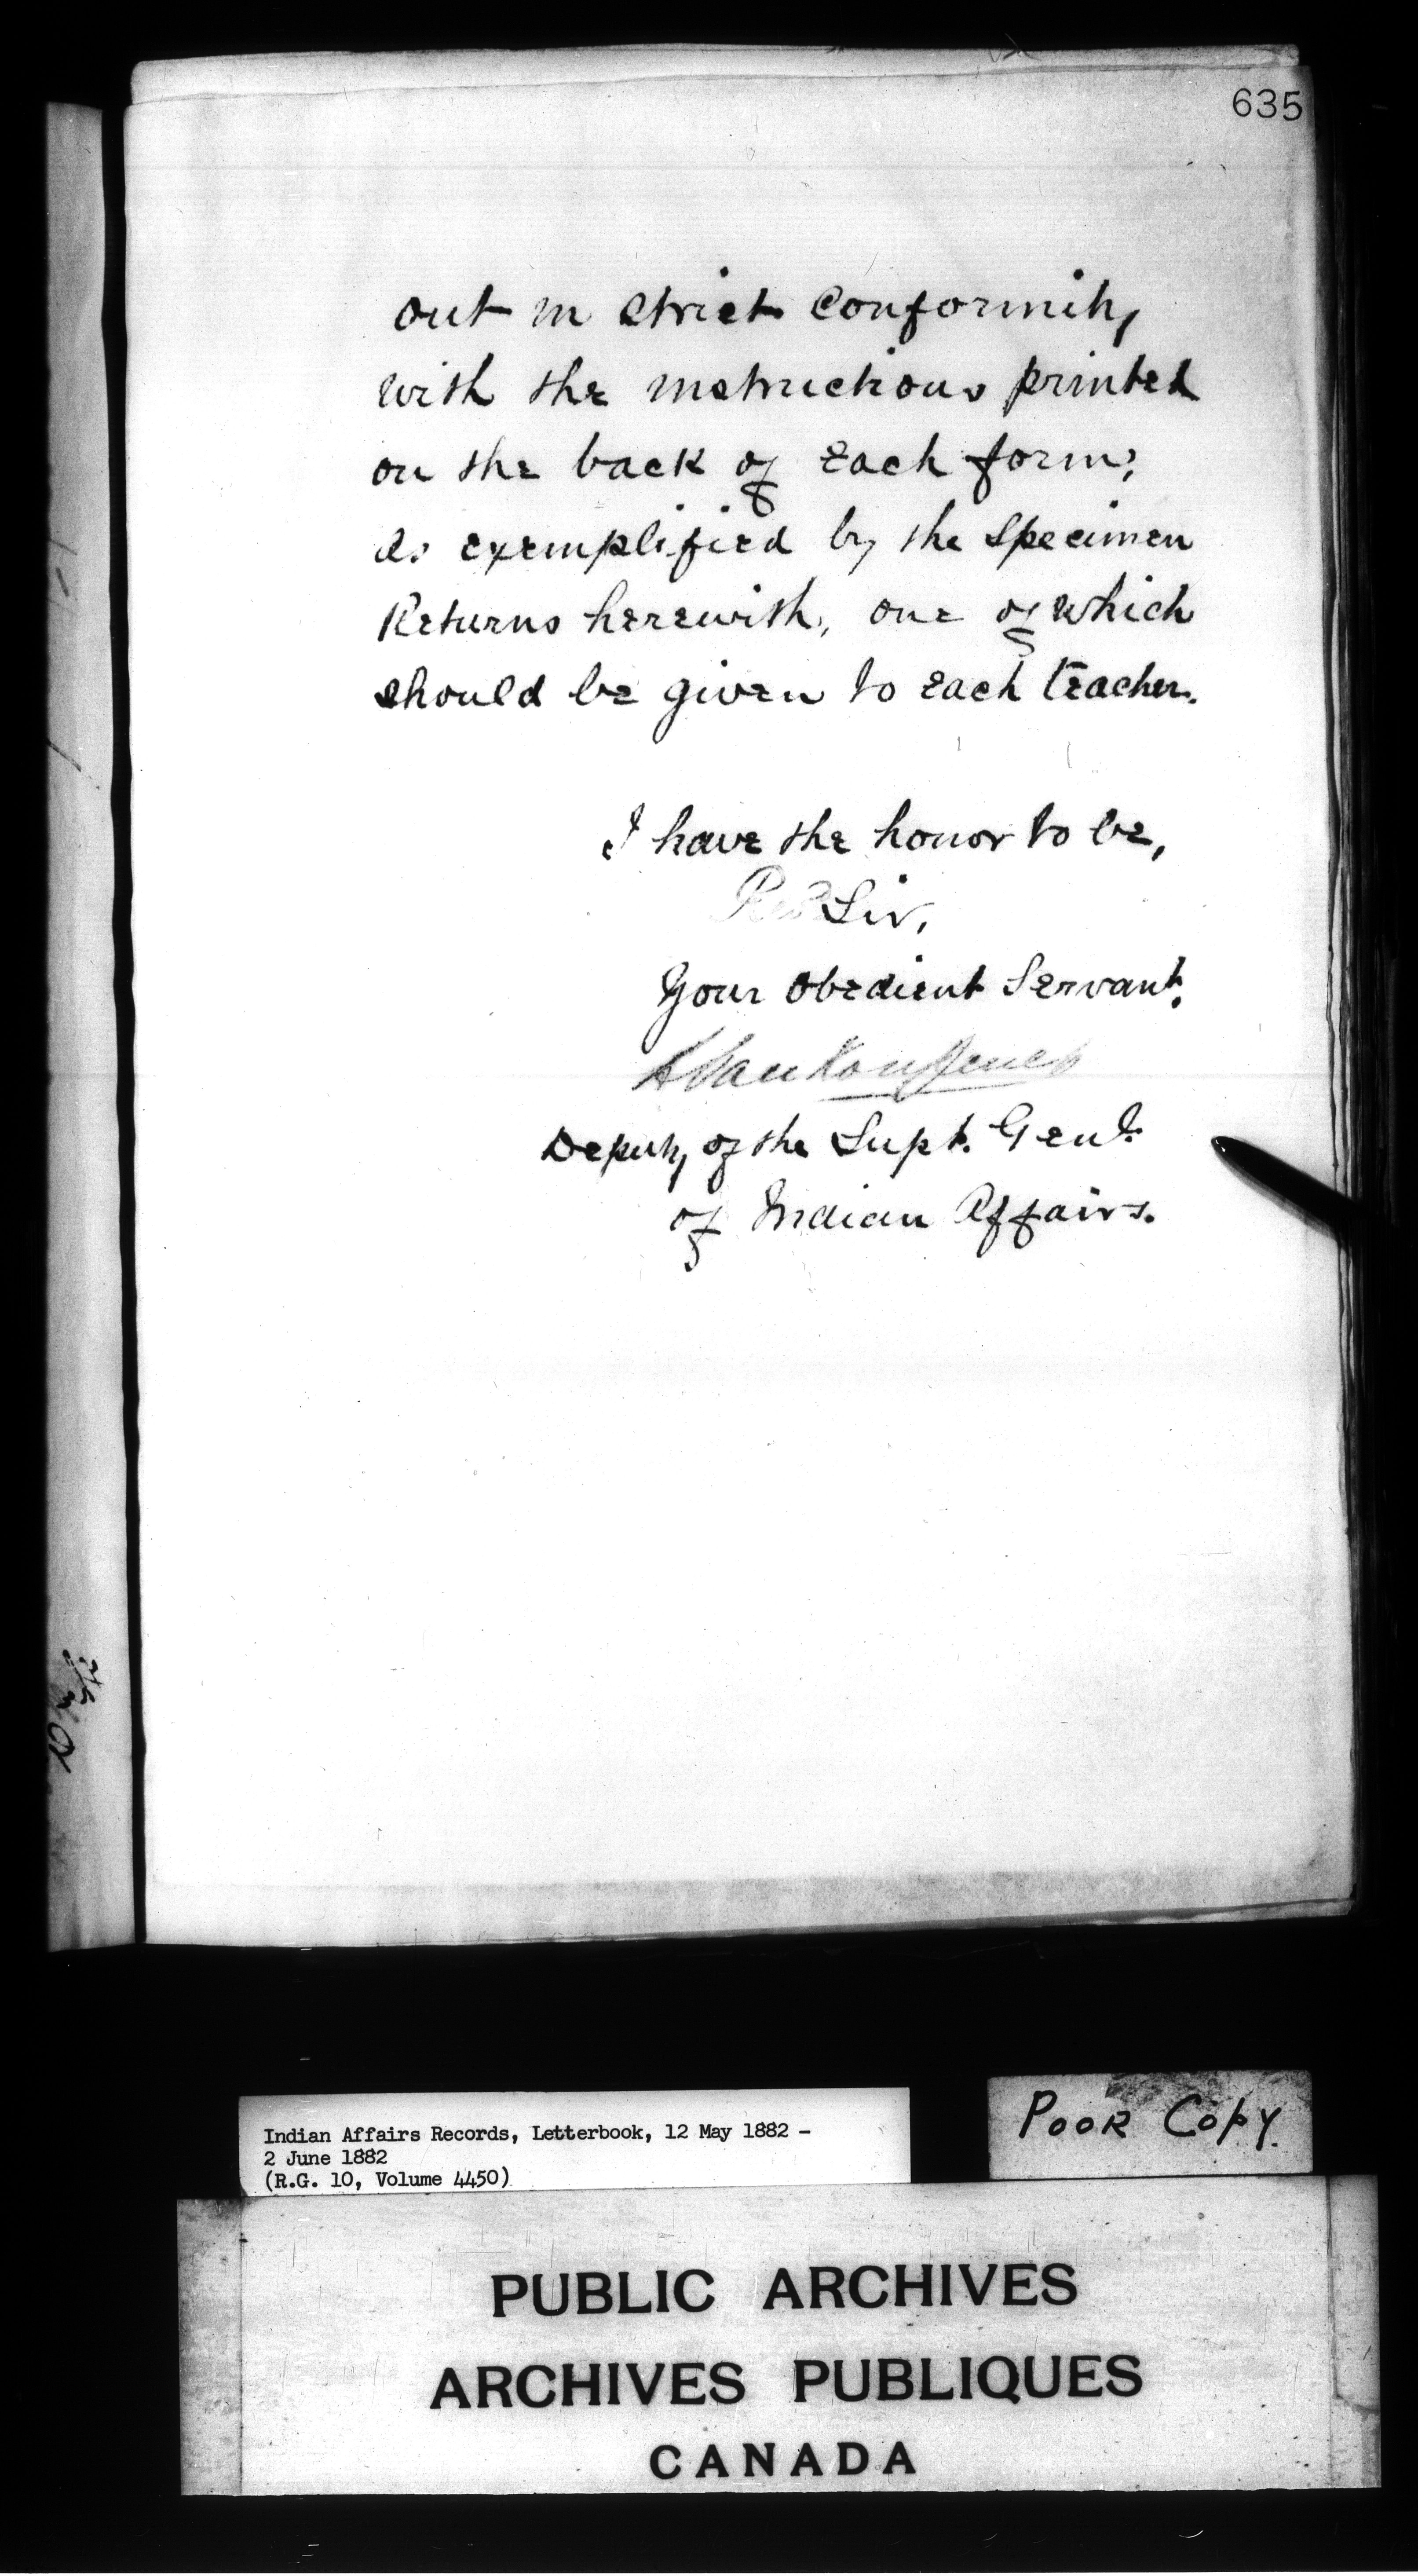 635
out in strict conformity
with the instructions printed
on the back of each form;
as exemplified by the Specimen
Returns herewith, one of which
should be given to each teacher.
I have the honor to be,
Revd Sir,
Your Obedient Servant.
L VanKoughnet
Deputy of the Supt. Genl.
of Indian Affairs.
Indian Affairs Records, Letterbook, 12 May 1882 -
2 June 1882
(R.G. 10, Volume 4450)
POOR COPY.
PUBLIC ARCHIVES
ARCHIVES PUBLIQUES
CANADA